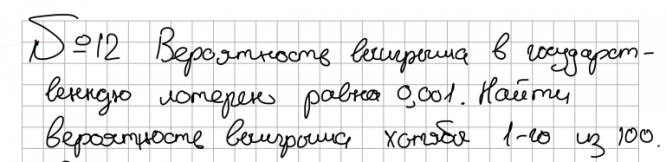 №12 Вероятность выигрыша в государст-
венную лотерею равна 0,001. Найти
вероятность выигрыша хотябы 1-го из 100.